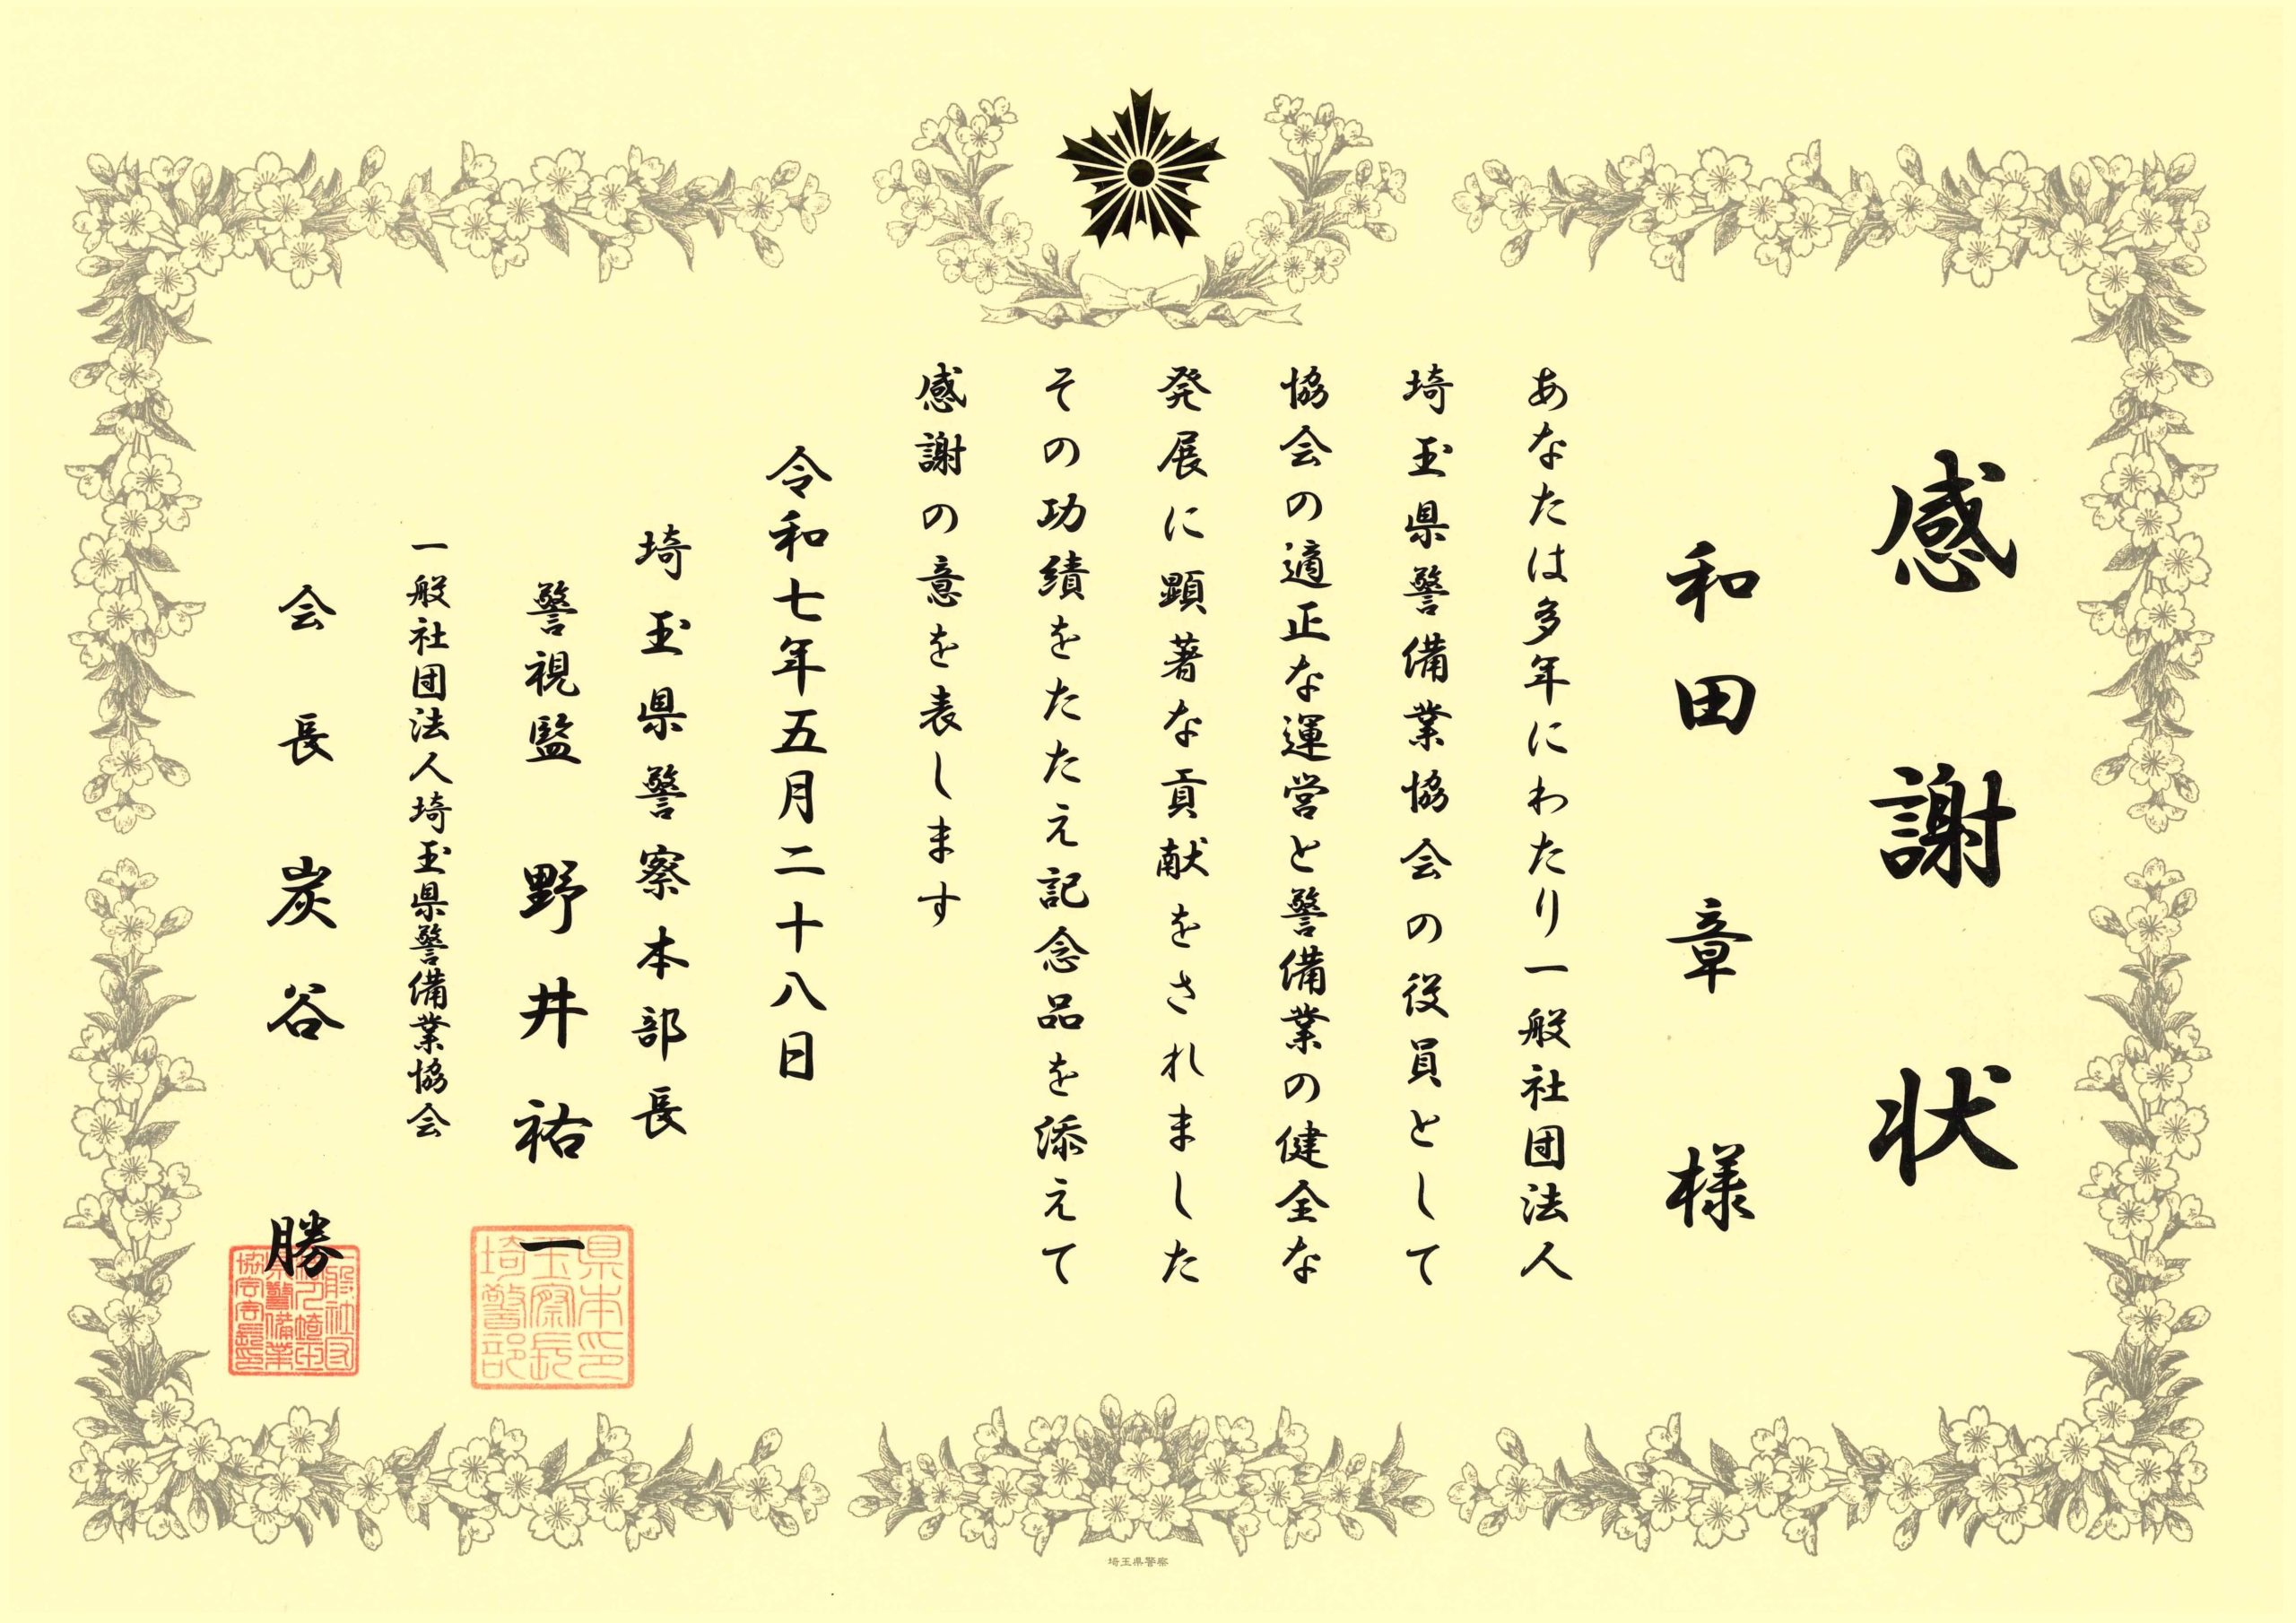 感謝状
和田 章 様
あなたは多年にわたり一般社団法人
埼玉県警備業協会の役員として
協会の適正な運営と警備業の健全な
発展に顕著な貢献をされました
その功績をたたえ記念品を添えて
感謝の意を表します
令和七年五月二十八日
埼玉県警察本部長
警視監 野井祐一
一般社団法人埼玉県警備業協会
会長 炭谷 勝
県本印
玉察長
埼警部
埼玉県警察